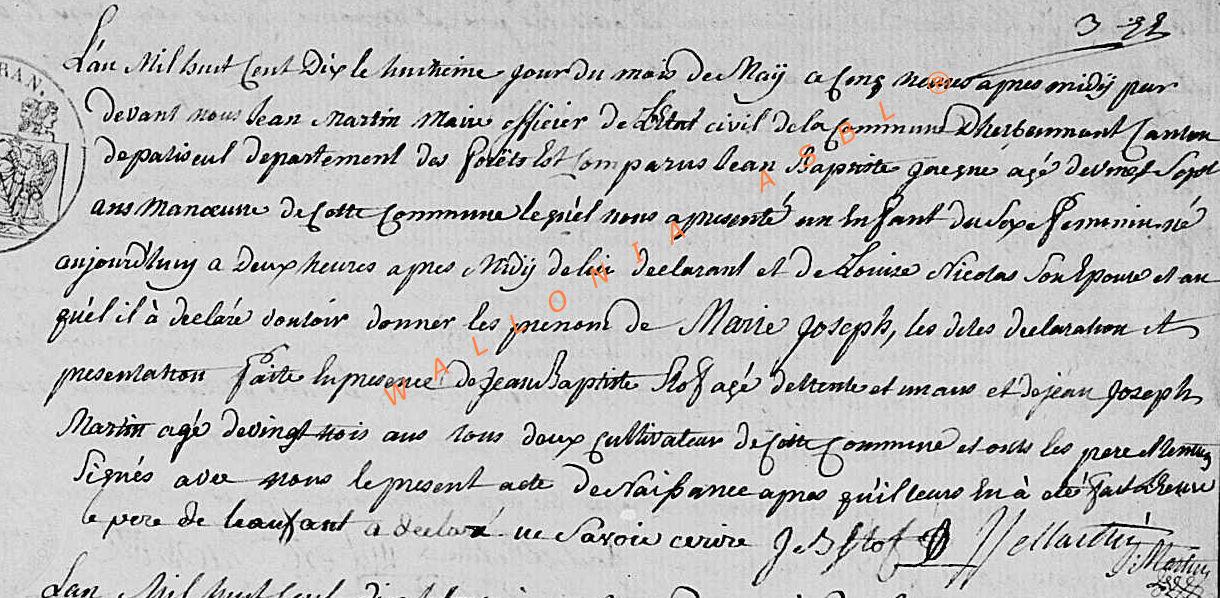 3
RAN.
L'an Mil huit Cent Dix le huitieme jour du mois de Maÿ a Cinq heures apres midÿ par
devant nous Jean Martin Maire officier de L'Etat civil de la Commune D'herbeumont Canton
de paliseul departement des forêts Est Comparus Jean Baptiste agé de vingt Sept
ans Manœuvre de Cette Commune lequel nous a presenté un Enfant du Sexe feminin né
aujourd'huy a Deux heures apres Midÿ de lui declarant et de Louise Nicolas Son Epouse et au
quel il à declaré vouloir donner les prenom de Marie Joseph, les dites declaration et
presentation faite En presence de Jean Baptiste Stof agé de trente et un ans et de jean Joseph
Martin agé de vingt trois ans tous deux Cultivateur de Cette Commune et onts les pere et temoin
Signés avec nous le present acte de Naissance apres qu'il leurs En à été fait Lecture
le pere de l'enfant a declaré ne Savoir ecrire J B Stof JJ Martin
J. Martin
L'an Mil huit Cent dix le
WALLONIA ASBL ®